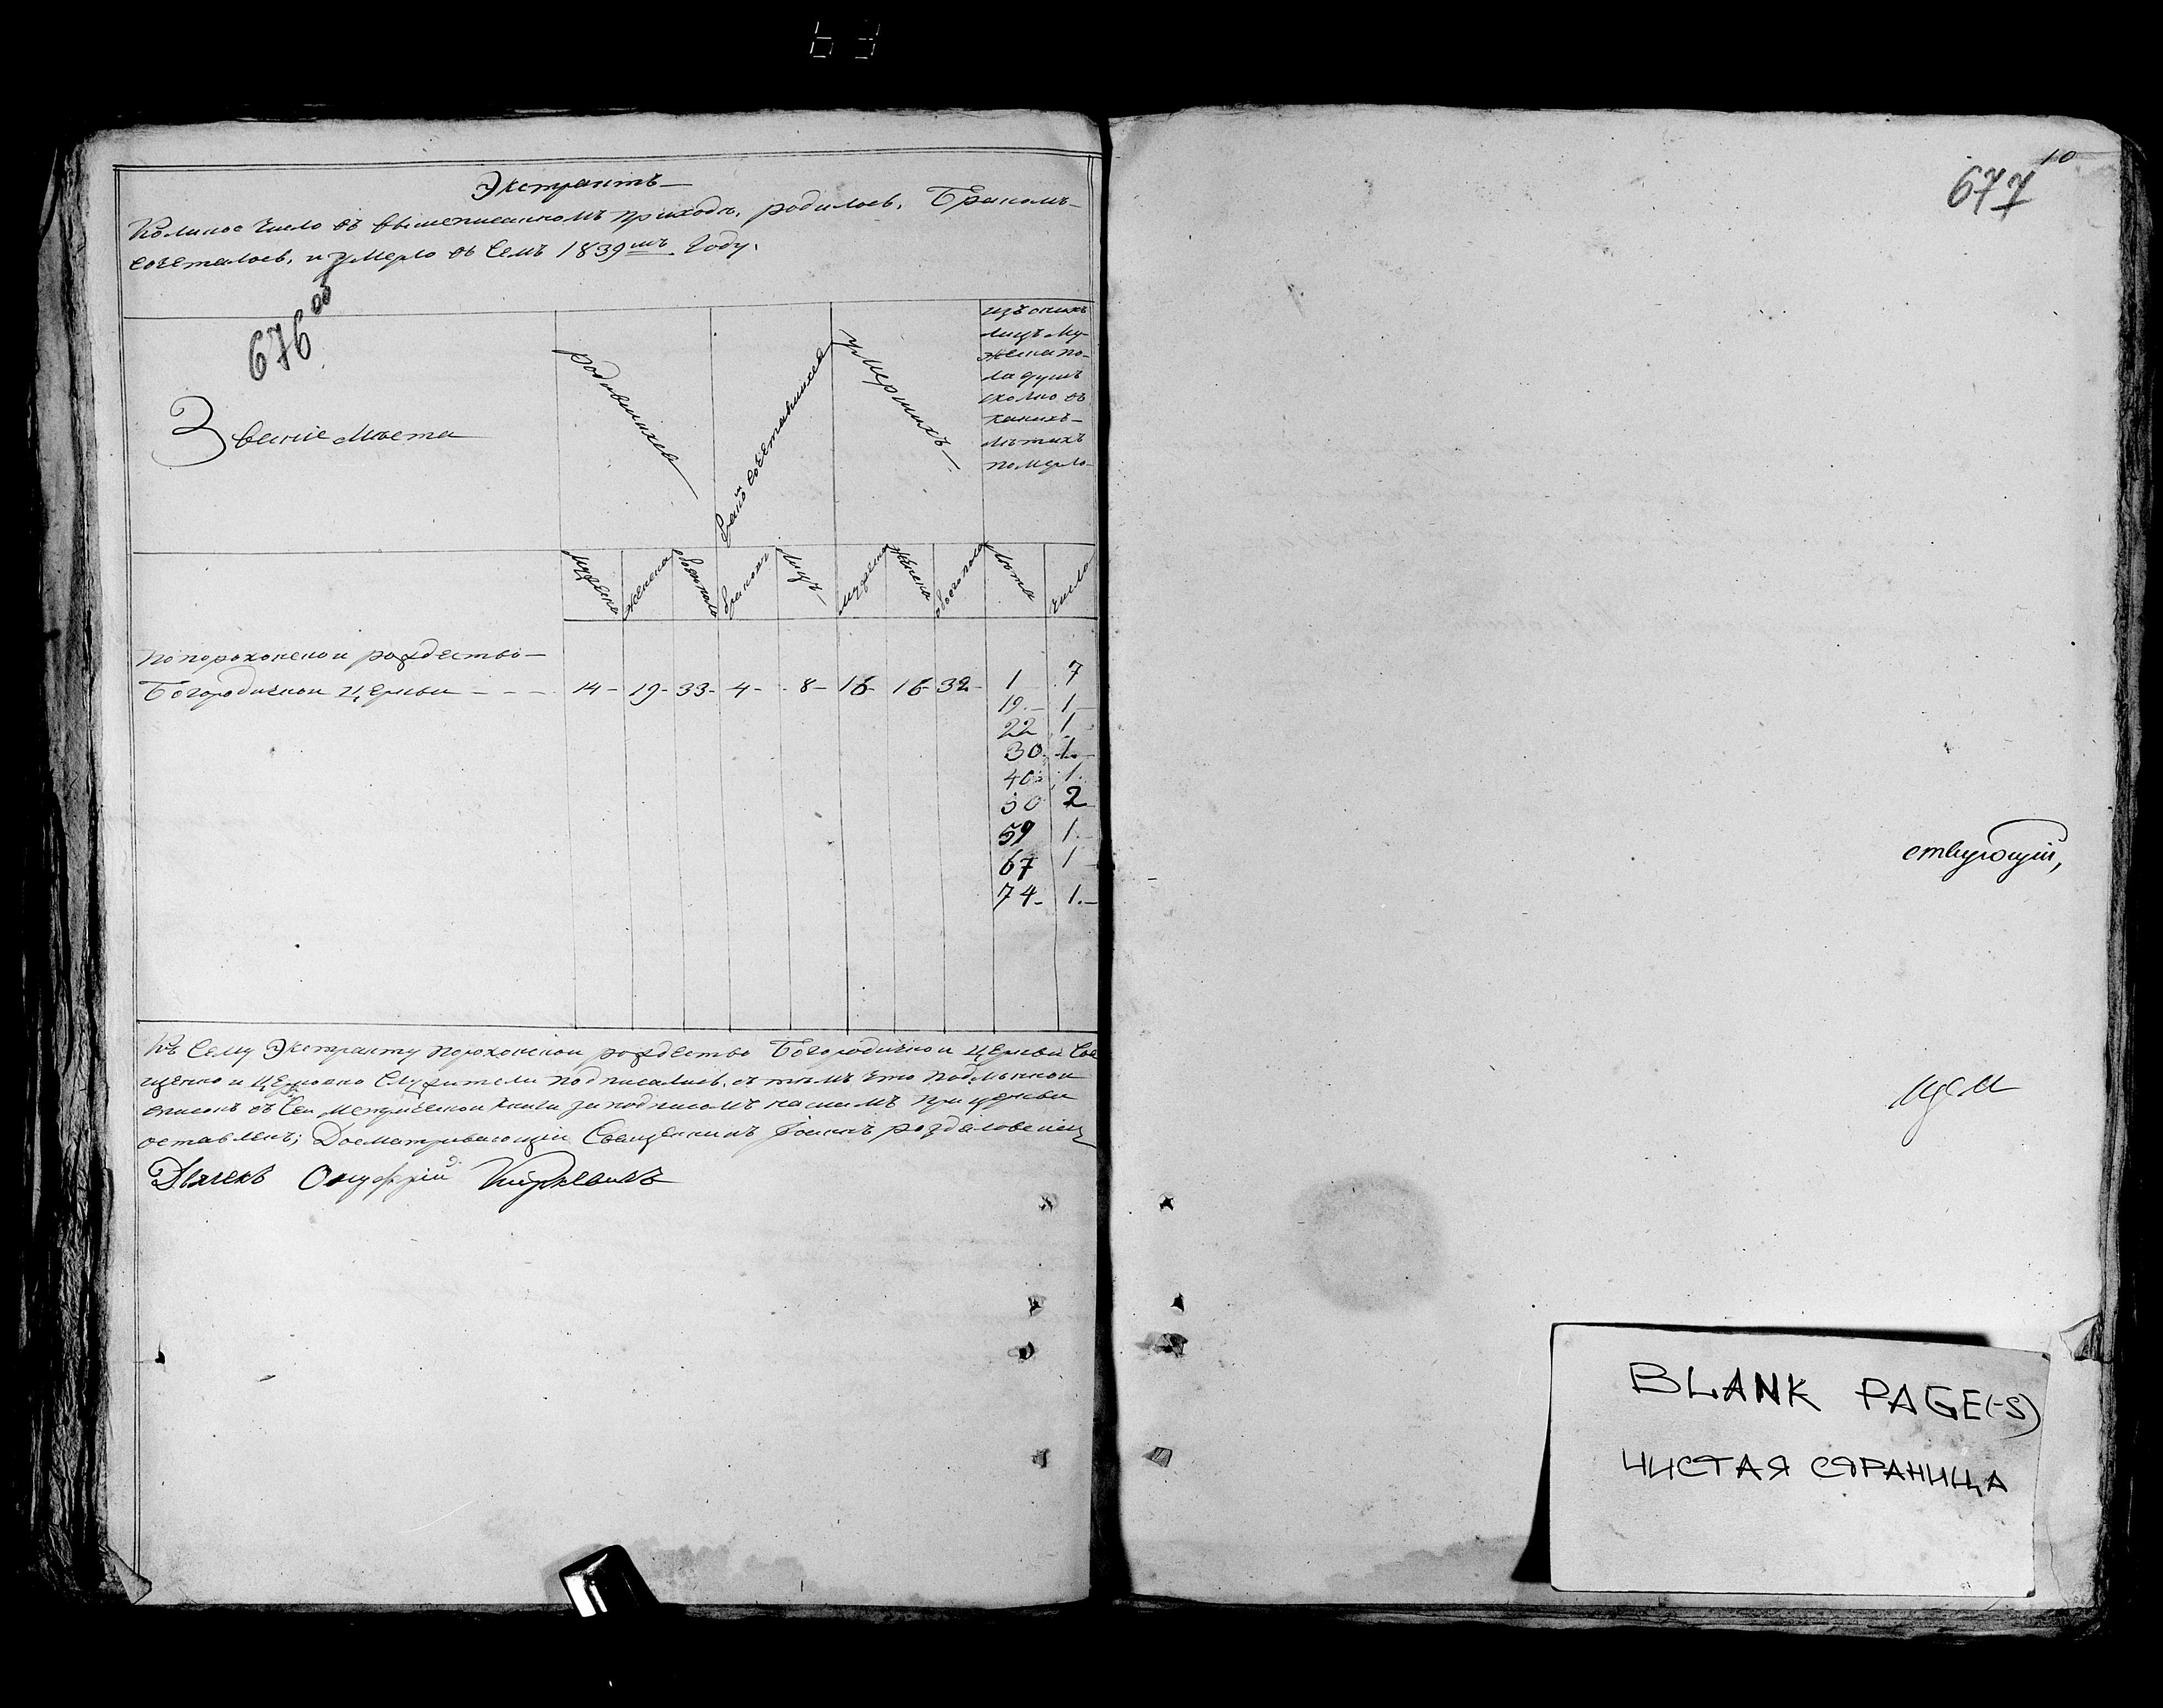 Экстрактъ
Коликое число въ вышеписанномъ приходѣ, родилось, Бракомъ
сочеталось, и умерло въ семъ 1839мъ Году.
676 об
Званіе Мѣста
родившихся
сочетавшихся
умершихъ
изъ оныхъ
лицъ му-
жеска по-
ла душъ
сколко въ
какихъ
лѣтахъ
померло
мужеска
женска
обоего пола
браковъ
лицъ
мужеска
женска
обоего пола
лѣта
число
По порохонской рождество-
Богородичной церкви - - - 14 - 19 - 33 - 4 - 8 - 16 - 16 - 32 - 1 7
19. 1
22 1
30 1.
40 1.
50 2
59 1.
67 1
74 1.
Къ сему Экстракту порохонской рождество Богородичной церкви Свя
щенно и церковно служители подписались, съ тѣмъ что подлинной
списокъ съ сей метрической книги за подписомъ нашимъ при церкви
оставленъ; Досматривающій Священникъ Іоаннъ
Дьячекъ Онуфрій
10
677
ствующій,
BLANK PAGE(-S)
ЧИСТАЯ СТРАНИЦА